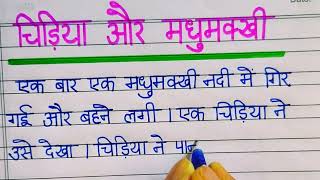 चिड़िया और मधुमक्खी
एक बार एक मधुमक्खी नदी में गिर
गई और बहने लगी । एक चिड़िया ने
उसे देखा । चिड़िया ने